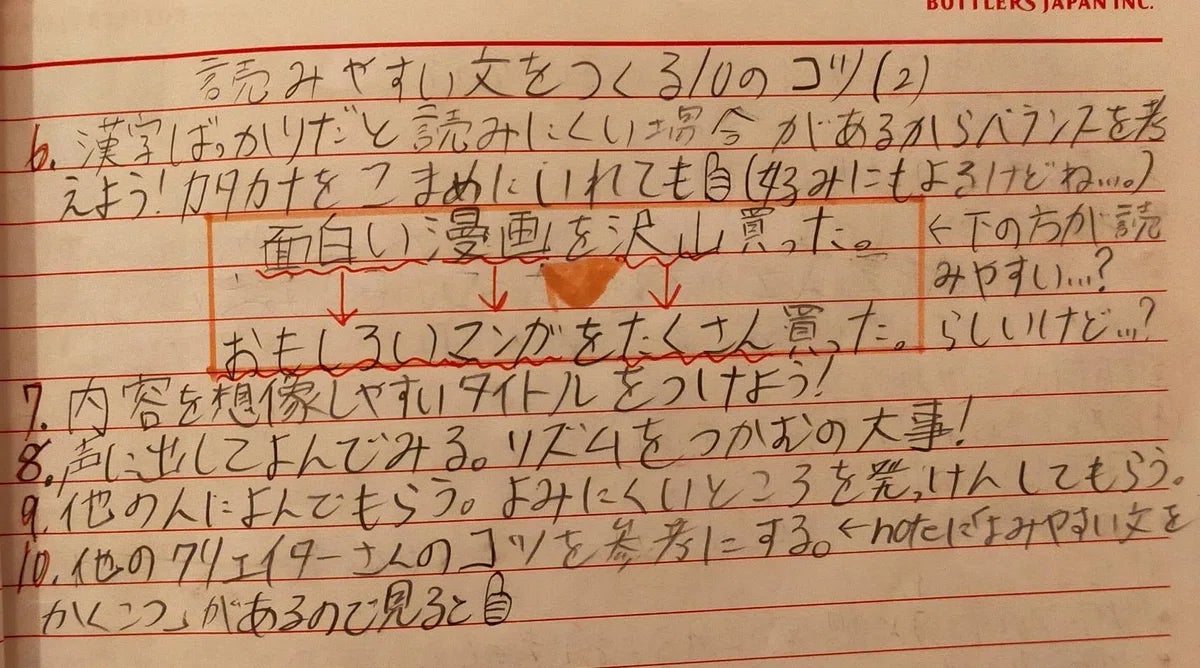 BOTTLERS JAPAN INC.
読みやすい文をつくる10のコツ(2)
6. 漢字ばっかりだと読みにくい場合があるからバランスを考
えよう!カタカナをこまめにいれても👍(好みにもよるけどね...。)
面白い漫画を沢山買った。
←下の方が読
みやすい...?
らしいけど...?
おもしろいマンガをたくさん買った。
7. 内容を想像しやすいタイトルをつけよう!
8. 声に出してよんでみる。リズムをつかむの大事!
9. 他の人によんでもらう。よみにくいところを発っけんしてもらう。
10. 他のクリエイターさんのコツを参考にする。←noteに「よみやすい文を
かくこつ」があるので見ると👍